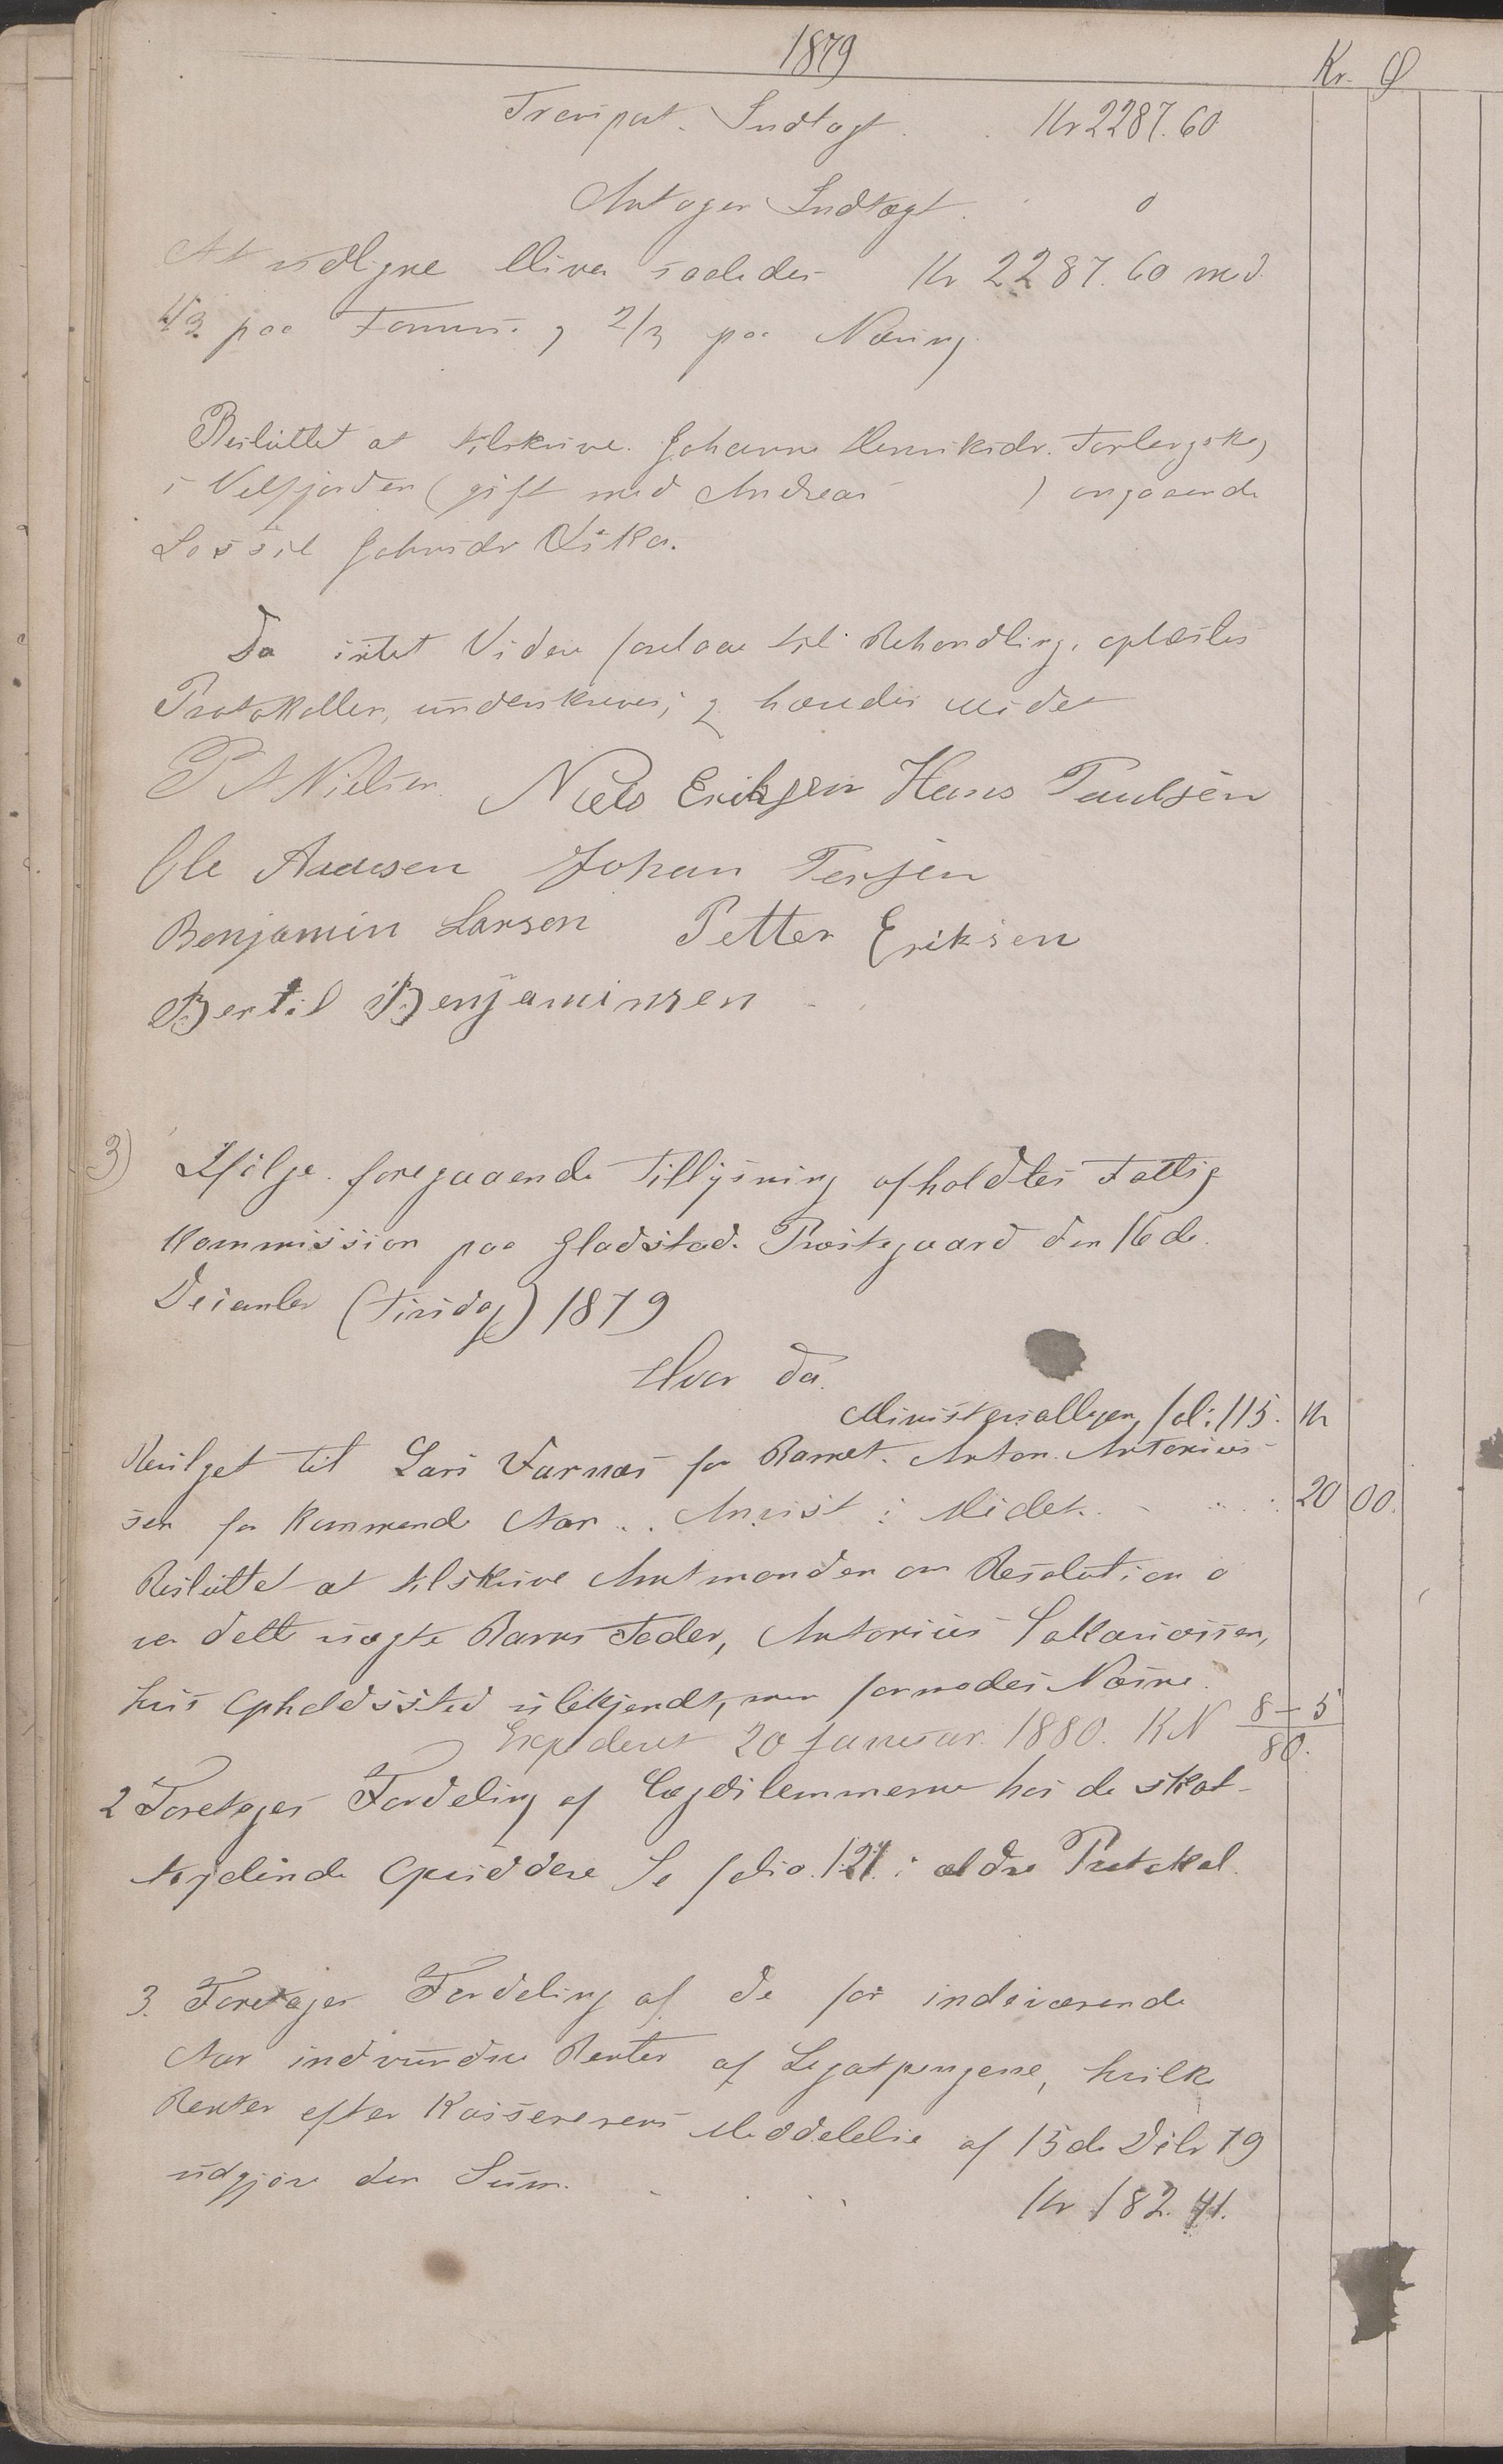 1879
Kr. Ø
Transport. Indtægt . . Kr 2287.60
Antagen Indtægt. . 0
At udligne bliver saaledes Kr 2287.60 med
1/3 paa Formue og 2/3 paa Næring
Besluttet at tilskrive Johanna Henriksdr. Torbergskog
i Velfjorden (gift med Andreas ) angaaende
Johnsdr Vika.
Da intet Videre forelaae til Behandling, oplæstes
Protokollen, underskreves, og hævedes mødet
P A Nielsen. Niels Eriksen Hans Paulsen
Ole Aadesen Johan Tersen
Benjamin Larsen Petter Eriksen
Bertil Benjaminsen
3) Ifølge foregaaende Tillysning afholdtes Fattig
Kommission paa Gladstad Præstegaard den 16de
December (Tirsdag) 1879
Hvor da
Ministerialbogen fol: 115. Kr
Bevilget til Lars Varnæs for Barnet Anton Antonius-
sen for kommende Aar . . Anvist i Mødet. 20 00.
Besluttet at tilskrive Amtmanden om Resolution o
ver dette uægte Barns Fader, Antonius Sakariassen,
hvis Opholdssted ubekjendt, men formodes Næsne.
Expederet 20 Januar 1880. RN 8-5
80.
2 Foretages Fordeling af Lægdslemmerne hos de skat-
tydende Opsiddere Se folio 121 i ældre Protokol.
3. Foretages Fordeling af de for indeværende
Aar indvundne Renter af Legatpengene, hvilke
Renter efter Kassererens Meddelelse af 15de Dcbr 79
udgjøre den Sum. . . . Kr 182.41.